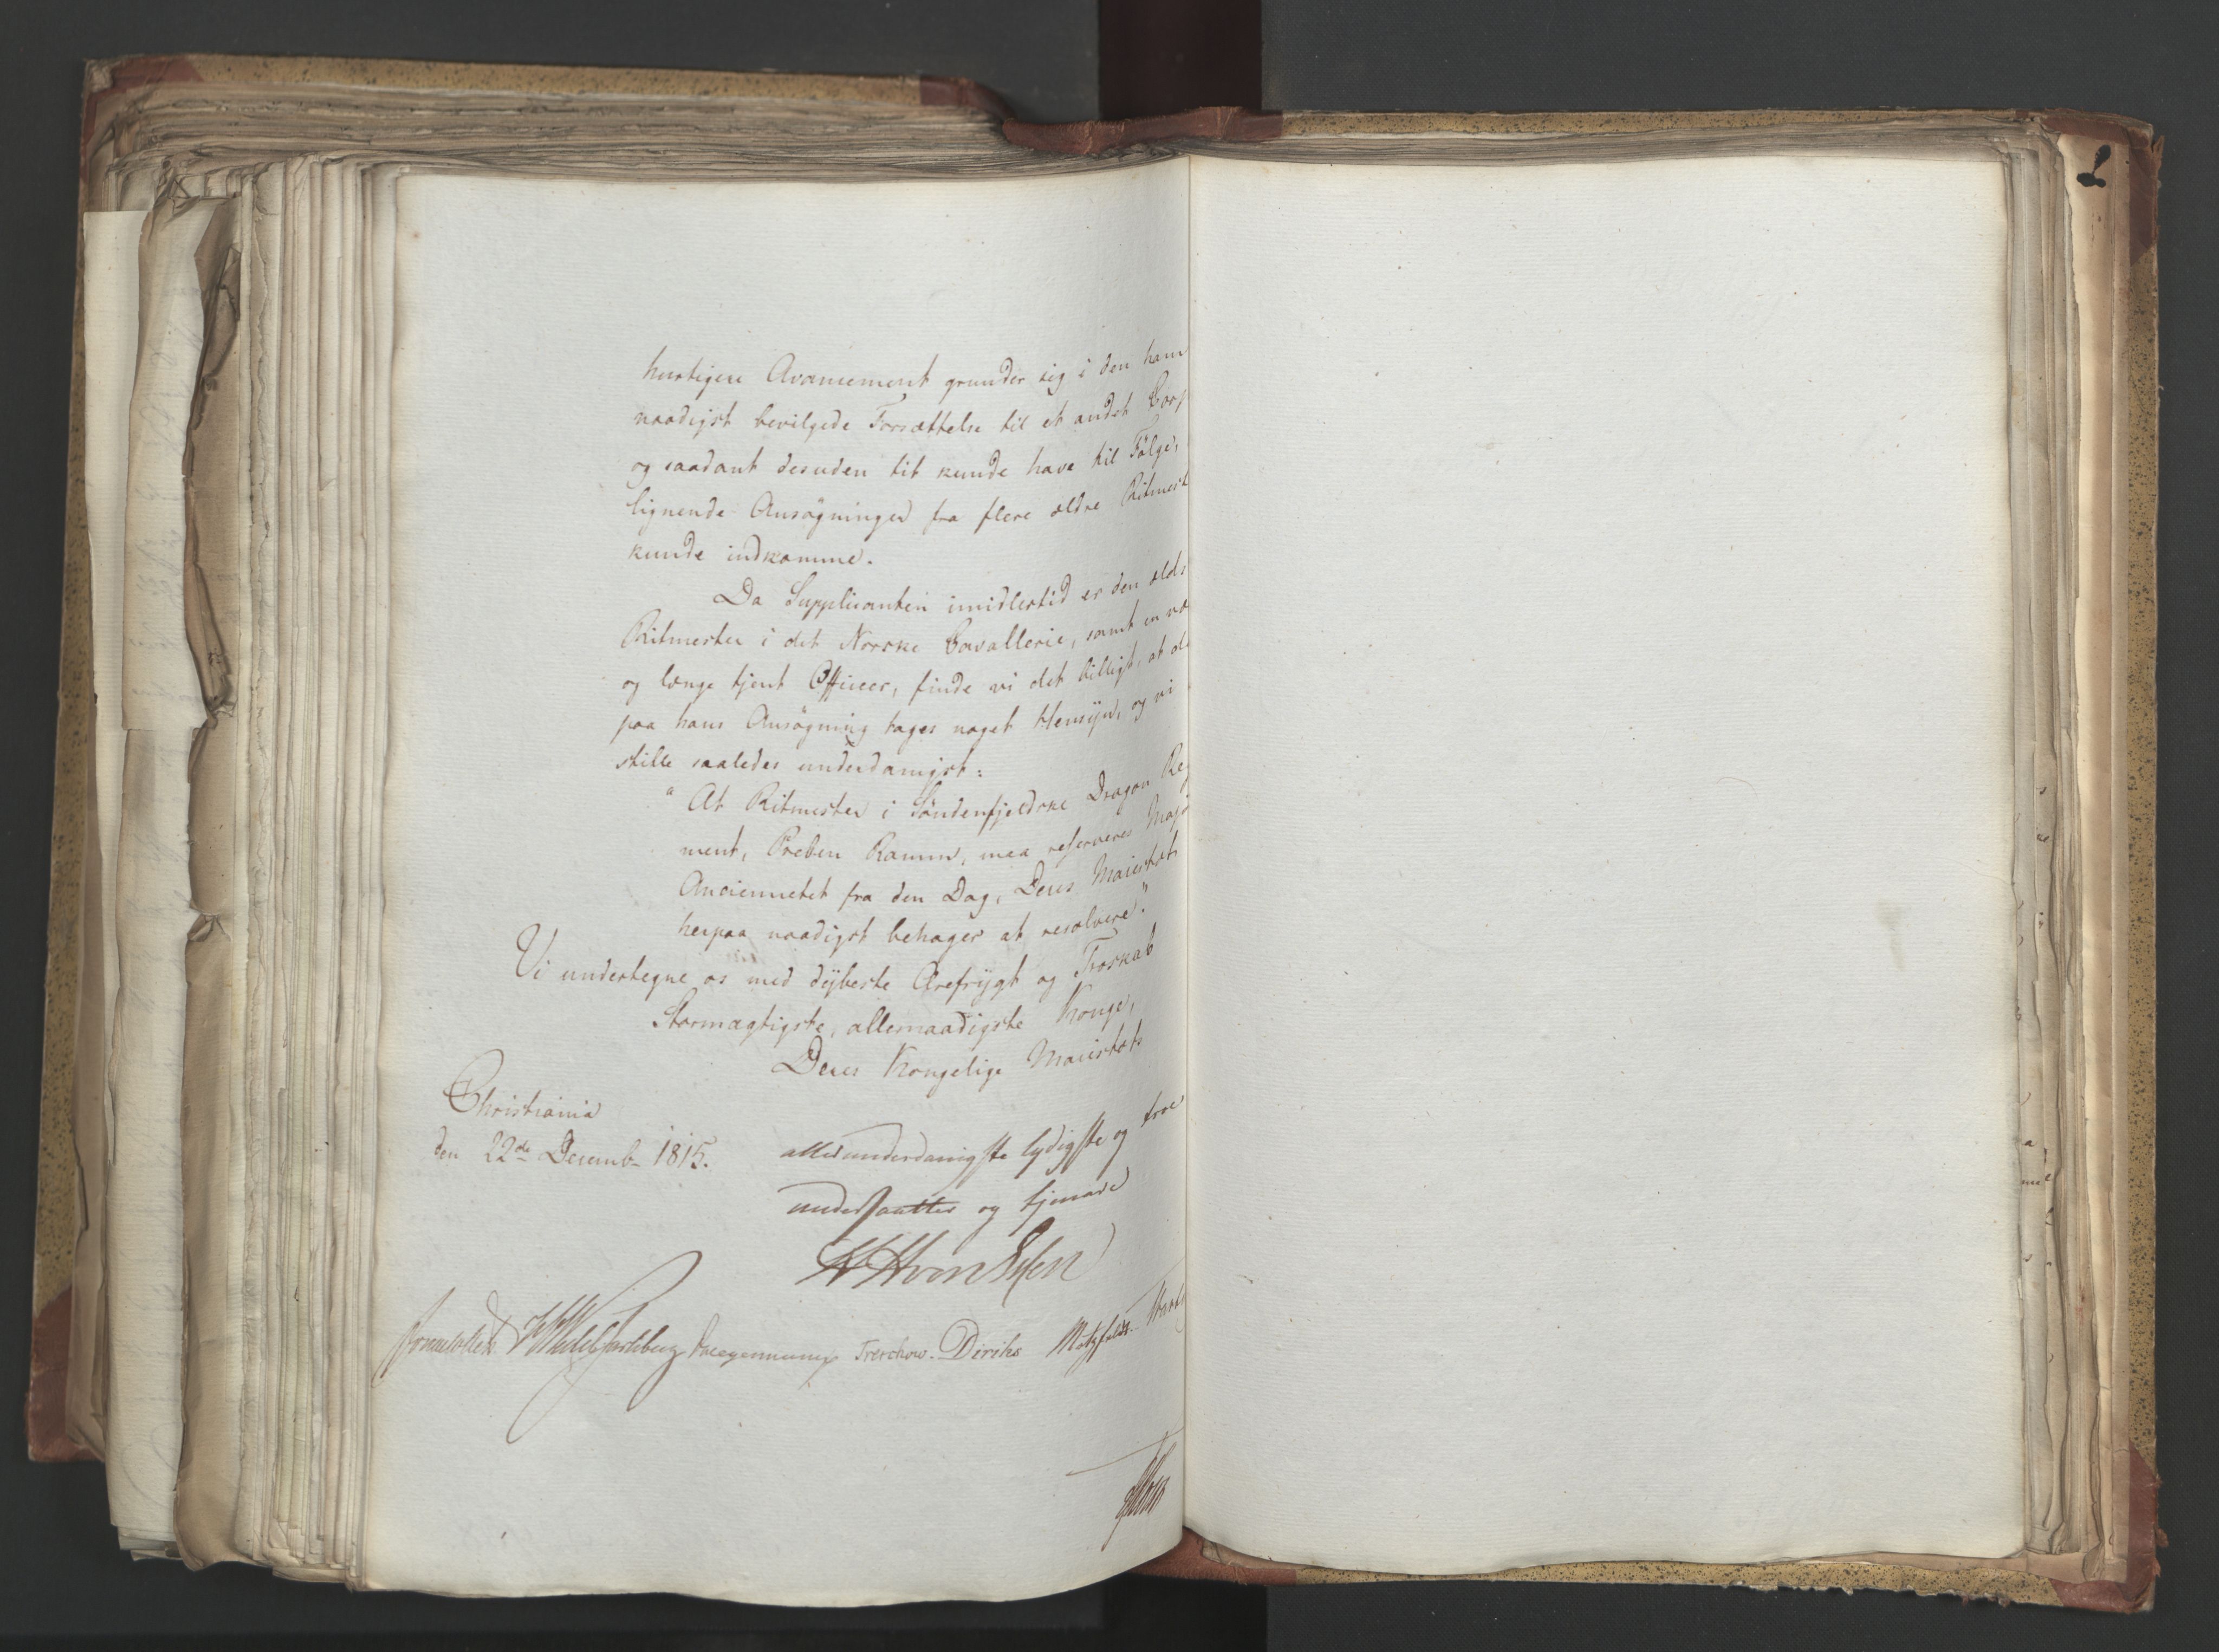 hurtigere Avancement grunder sig i den ham
naadigst bevilgede Forsættelse til et andet Corp
og saadant desuden tit kunde have til Følge,
lignende Ansøgninger fra flere ældre Ritmest
kunde indkomme.
Da Supplicanten imidlertid er den ælds
Ritmester i det Norske Cavallerie, samt en
og længe tjent Officeer, finde vi det billigt, at de
paa hans Ansøgning tages noget Hensyn, og vi
stille saaledes underdanigst:
"At Ritmester i Søndenfjeldske Dragon Reg
ment, Preben Ramm, maa reserveres Majo
Anciennetet fra den Dag, Deres Maiestæt
herpaa naadigst behager at resolvere."
Vi undertegne os med dybeste Ærefrygt og Troskab
Stormægtigste, allernaadigste Konge,
Deres Kongelige Maiestæts
Christiania
den 22de Decemb. 1815.
allerunderdanigste lydigste og troe
undersaatter og tjenere
Sommerhielm
Wedel Jarlsberg
Treschow.
Diriks
Motzfeldt